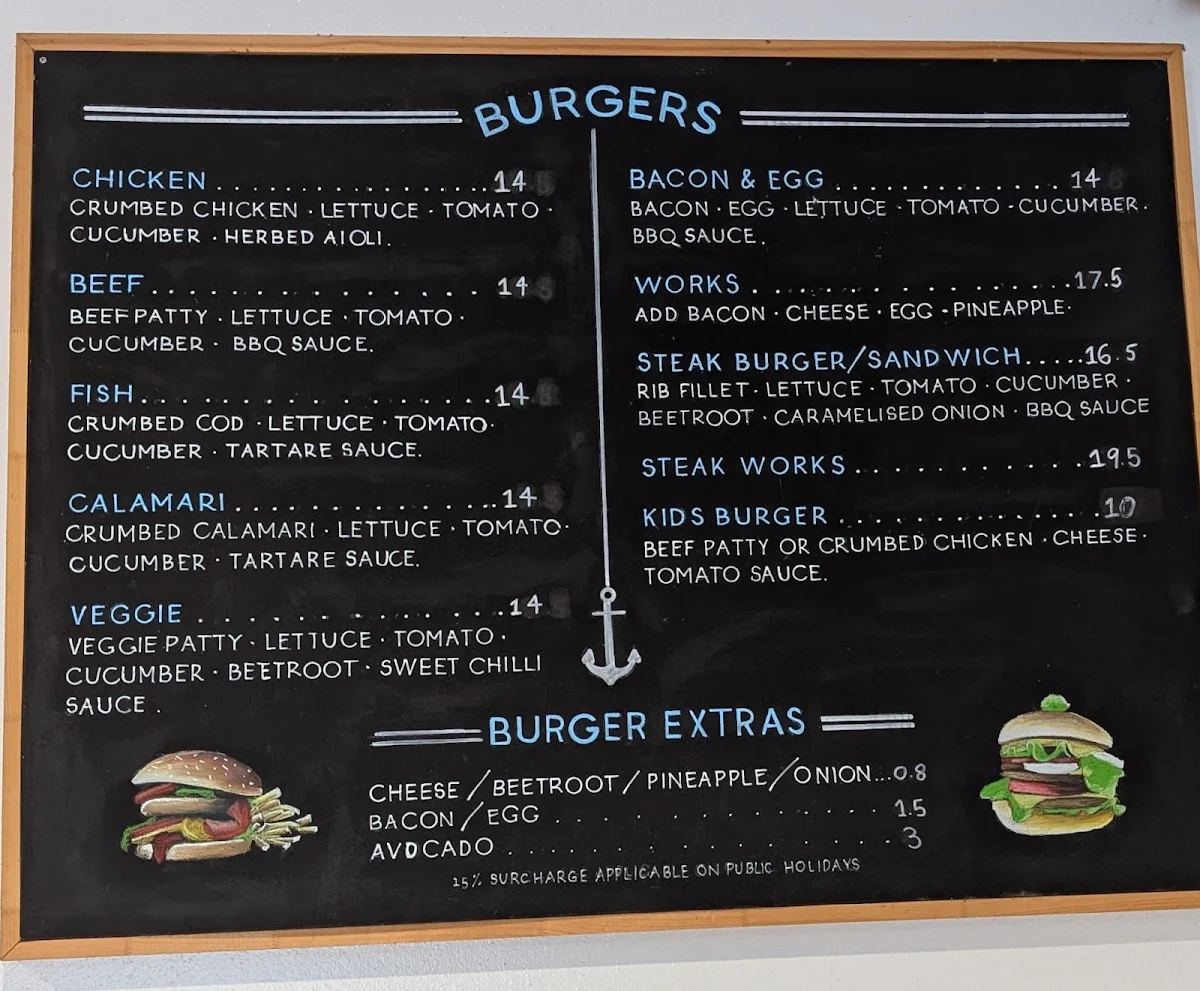 BURGERS
CHICKEN.................14
CRUMBED CHICKEN · LETTUCE · TOMATO ·
CUCUMBER · HERBED AIOLI.
BEEF.................14
BEEF PATTY · LETTUCE · TOMATO ·
CUCUMBER · BBQ SAUCE.
FISH.................14
CRUMBED COD · LETTUCE · TOMATO·
CUCUMBER · TARTARE SAUCE.
CALAMARI..............14
CRUMBED CALAMARI · LETTUCE · TOMATO·
CUCUMBER · TARTARE SAUCE.
VEGGIE................14
VEGGIE PATTY · LETTUCE · TOMATO ·
CUCUMBER · BEETROOT · SWEET CHILLI
SAUCE.
BACON & EGG..............14
BACON · EGG · LETTUCE · TOMATO · CUCUMBER.
BBQ SAUCE.
WORKS.................17.5
ADD BACON · CHEESE · EGG · PINEAPPLE·
STEAK BURGER/SANDWICH.....16.5
RIB FILLET · LETTUCE · TOMATO · CUCUMBER ·
BEETROOT · CARAMELISED ONION · BBQ SAUCE
STEAK WORKS.............19.5
KIDS BURGER..............10
BEEF PATTY OR CRUMBED CHICKEN · CHEESE·
TOMATO SAUCE.
BURGER EXTRAS
CHEESE/BEETROOT/PINEAPPLE/ONION...0.8
BACON/EGG.............1.5
AVOCADO...............3
15% SURCHARGE APPLICABLE ON PUBLIC HOLIDAYS